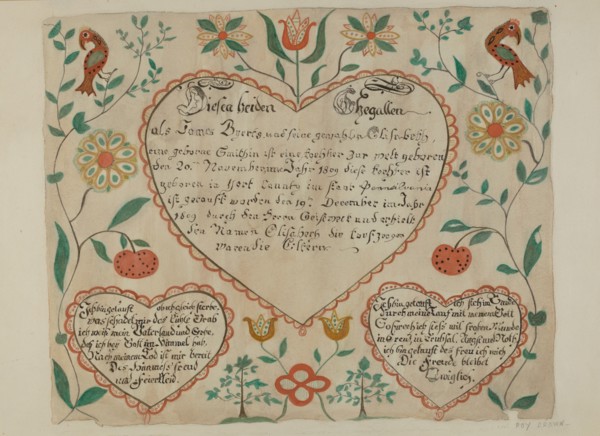 Diesen beiden Ehegatten
als James Byers und seine gemahlin Elisabeth
eine geborne Smithin ist eine tochter zur welt geboren
den 20. November im Jahr 1809 diese tochter ist
geboren in York County im staat
ist getauft worden den 19. December im Jahr
1809 durch den Herrn und erhielt
den Namen Elisabeth die taufzeugen
waren die Eltern
Ich bin getauft ob ich gleich sterbe
was schadet mir das kühle Grab
ich weis mein Vaterland und Erbe
das ich bey Gott im Himmel hab
Nach meinem Tod ist mir bereit
Des Himmels freud
und Feierkleid.
Ich bin getauft ich steh im Bunde
Durch meine Tauf mit meinem Gott
So sprech ich stets mit frohem Munde
in Creuz in Trübsal Angst und Noth
ich bin getauft des freu ich mich
Die Freude bleibet
Ewiglich.